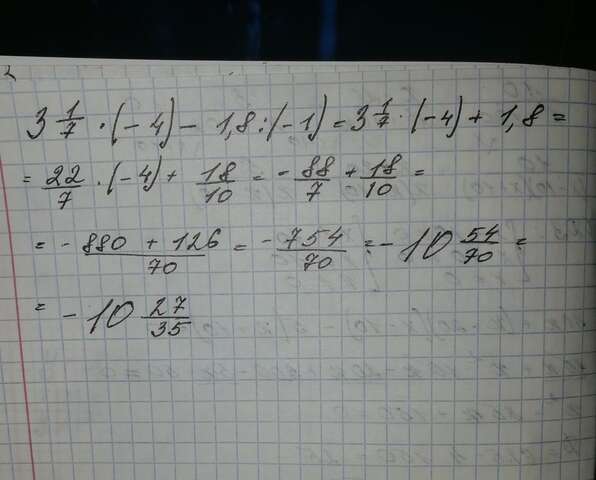 3 1/7 · (-4) - 1,8 : (-1) = 3 1/7 · (-4) + 1,8 =
= 22/7 · (-4) + 18/10 = - 88/7 + 18/10 =
= (-880 + 126)/70 = - 754/70 = - 10 54/70 =
= - 10 27/35